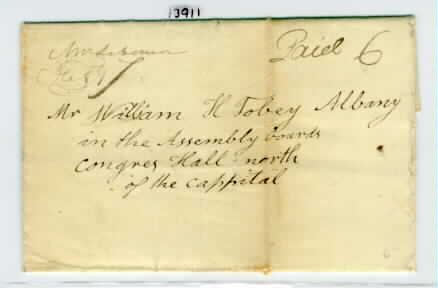 13911
Paid 6
Mr William H Tobey Albany
in the Assembly boards
Congres Hall north
of the cappital
6